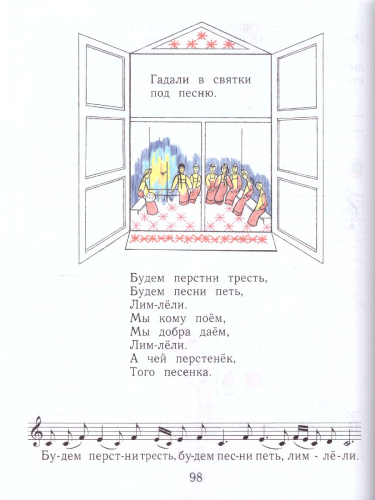 Гадали в святки
под песню.
Будем перстни тресть,
Будем песни петь,
Лим-лёли.
Мы кому поём,
Мы добра даём,
Лим-лёли.
А чей перстенёк,
Того песенка.
Бу-дем перст-ни тресть, бу-дем пес-ни петь, лим - лё-ли.
98